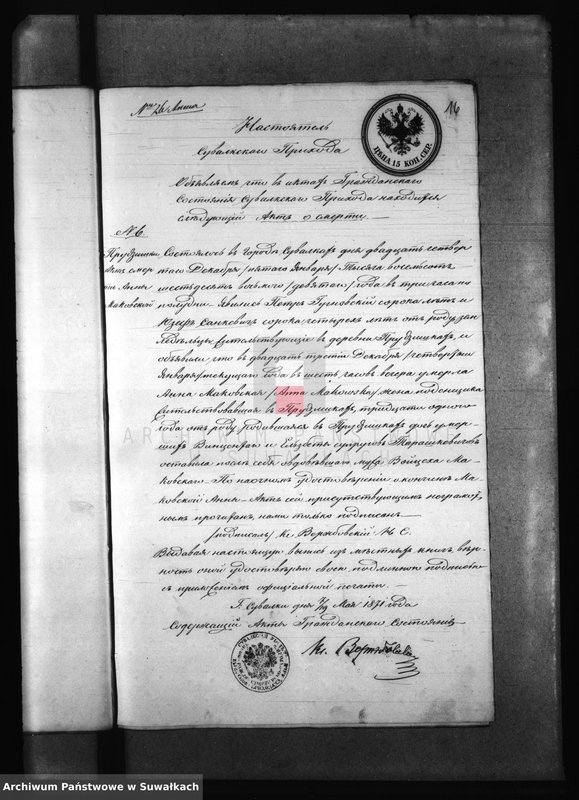 16
ЦѢНА 15 КОП. СЕР.
Настоятель
Сувалкскаго Прихода
Объявляемъ что въ актахъ Гражданскаго
Состоянія Сувалкскаго Прихода находится
слѣдующій Актъ о смерти
N 6
Состоялось въ Городѣ Сувалкахъ дня двадцать четвер
таго Декабря /пятаго Января/ Тысяча восемьсотъ
шестьдесятъ /девятаго/ года въ три часа по
полудни. Явились Петръ сорока лѣтъ и
сорока четырехъ лѣтъ отъ роду
жительствующіе въ деревни и
объявили, что въ двадцать третій Декабря /четвертый
Января/ текущаго года въ шесть часовъ вечера умерла
Анна Маковская /Anna Makowska/ жена поденщика
жительствовавшая въ тридцати одного
года отъ роду, родившаяся въ дочь умер-
шихъ и Елъзбеты супруговъ Тарашкевичовъ
оставила послѣ себя овдовѣвшаго мужа Войцеха Ма-
ковскаго. По наочномъ удостовѣреніи о кончинѣ Ма-
ковской Анны Актъ сей присутствующимъ неграмот-
нымъ прочитанъ, нами только подписанъ
/подписалъ/ Кс.
Выдавая настоящую выпись изъ мѣстныхъ книгъ, вѣр-
ность оной удостовѣряю своею подлинною подписью
съ приложеніемъ официальной печати.
Г. Сувалки дня 7/19 Мая 1871 года
Содержащій Акты Гражданскаго Состоянія
Кс.
ARCHIWUM
SUWAŁKACH
Archiwum Państwowe w Suwałkach